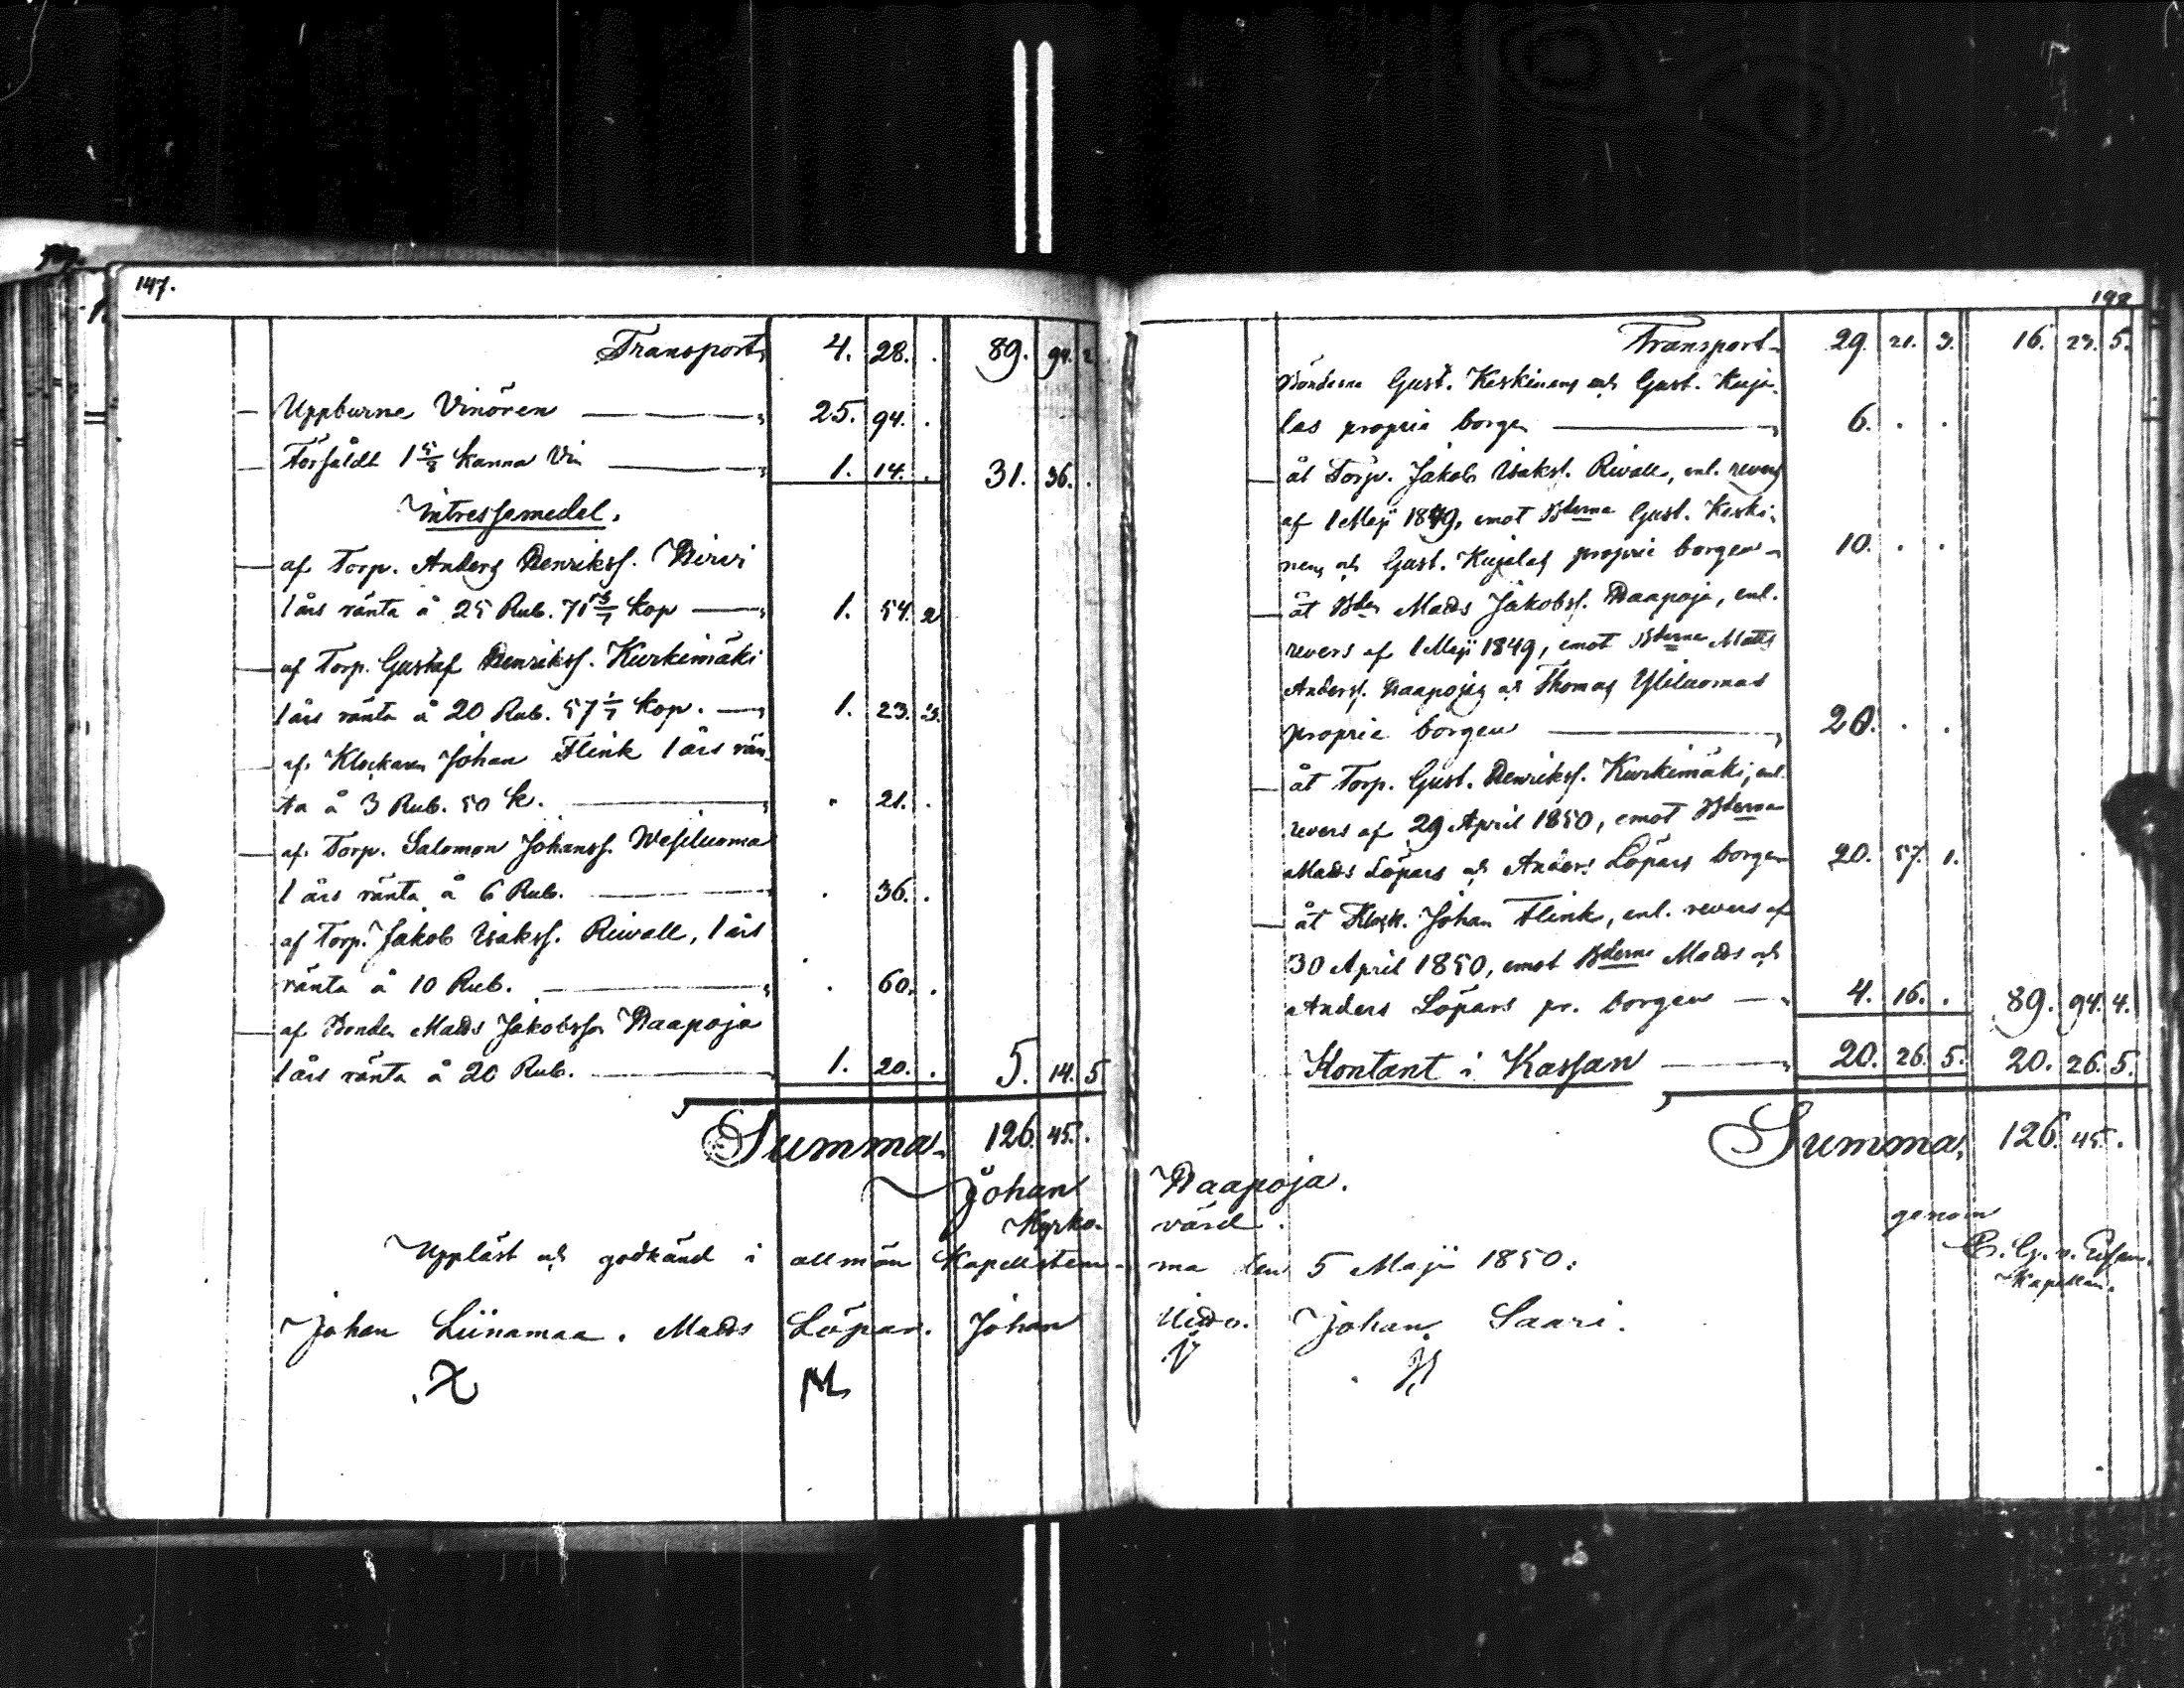 147.
Transport, 4. 28. . 89. 94. 2
— Uppburne Vinören — 25. 94. .
— Försåldt 1 5/8 kanna Vin — 1. 14. . 31. 36. .
Intressemedel.
— af Torp. Anders Henrikss. Hirvi
1 års ränta å 25 Rub. 71 3/7 kop — 1. 54. 2
— af Torp. Gustaf Henrikss. Kurkimäki
1 års ränta å 20 Rub. 57 1/7 kop. — 1. 23. 3.
— af Klockaren Johan Flink 1 års rän-
ta å 3 Rub. 50 k. — . 21. .
— af Torp. Salomon Johanss. Wesiluoma
1 års ränta å 6 Rub. — . 36. .
af Torp. Jakob Isakss. Riwall, 1 års
ränta å 10 Rub. — . 60. .
— af Bonden Mads Jakobsson Haapoja
1 års ränta å 20 Rub. — 1. 20. . 5. 14. 5
Summa 126. 45. .
198
Transport 29. 21. 3. 16. 23. 5.
Bönderne Gust. Keskinens och Gust. Kuja-
las proprie borgen — 6. . .
— åt Torp. Jakob Isakss. Riwall, enl. revers
af 1 Maji 1849, emot Bderne Gust. Keski-
nens och Gust. Kujalas proprie borgen 10. . .
— åt Bden Mads Jakobss. Haapoja, enl.
revers af 1 Maji 1849, emot Bderne Matts
Anderss. Haapojas och Thomas Yliluomas
proprie borgen — 20. . .
— åt Torp. Gust. Henrikss. Kurkimäki, enl.
revers af 29 April 1850, emot Bderne
Mads Löpars och Anders Löpars borgen 20. 57. 1.
— åt Klock. Johan Flink, enl. revers af
30 April 1850, emot Bderne Mads och
Anders Löpars pr. borgen — 4. 16. . 89. 94. 4.
Kontant i Kassan — 20. 26. 5. 20. 26. 5.
Summa, 126. 45. .
Johan Haapoja.
Kyrko- värd.
genom
Kapellan.
Uppläst och godkänd i allmän Kapellstem- ma den 5 Maji 1850.
Johan Liinamaa. Mads Löpar. Johan Uitto. Johan Saari.